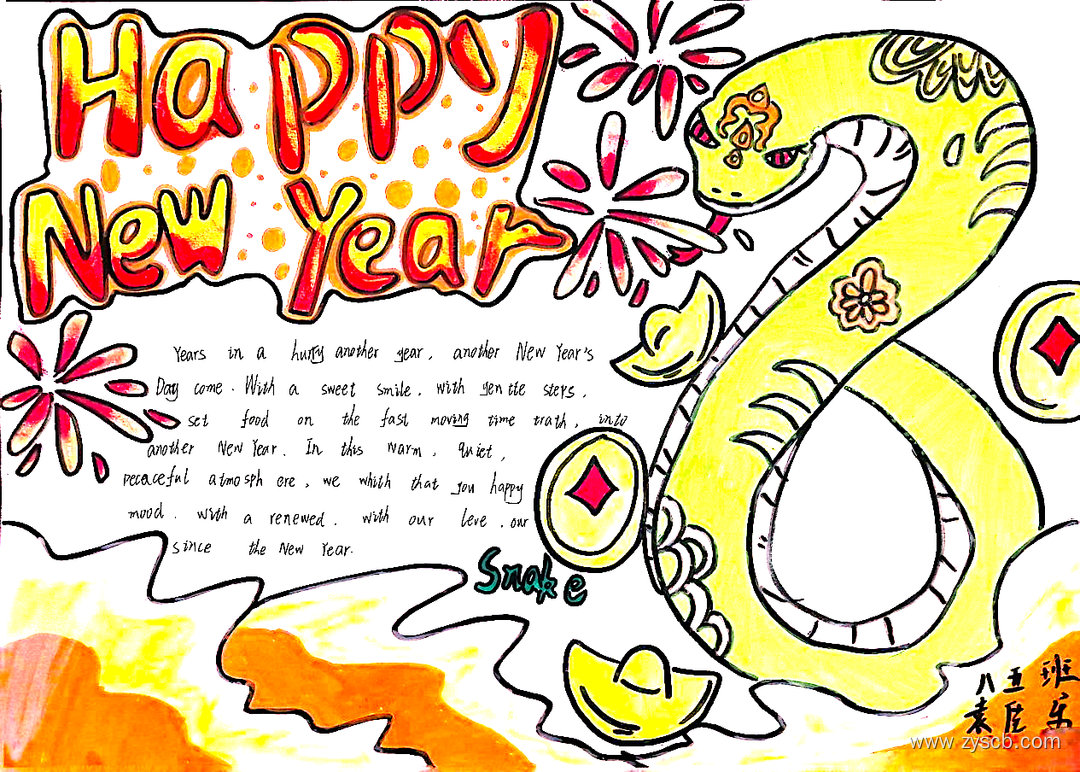 Happy
New Year
Years in a hurry another year, another New Year's
Day come. With a sweet smile, with gentle steps,
set food on the fast moving time trath, into
another New Year. In this warm, quiet,
peceaceful atmosph ere, we whith that you happy
mood. with a renewed. with our leve, our
since the New Year.
Snake
八五班
袁佳乐
www.zyscb.com